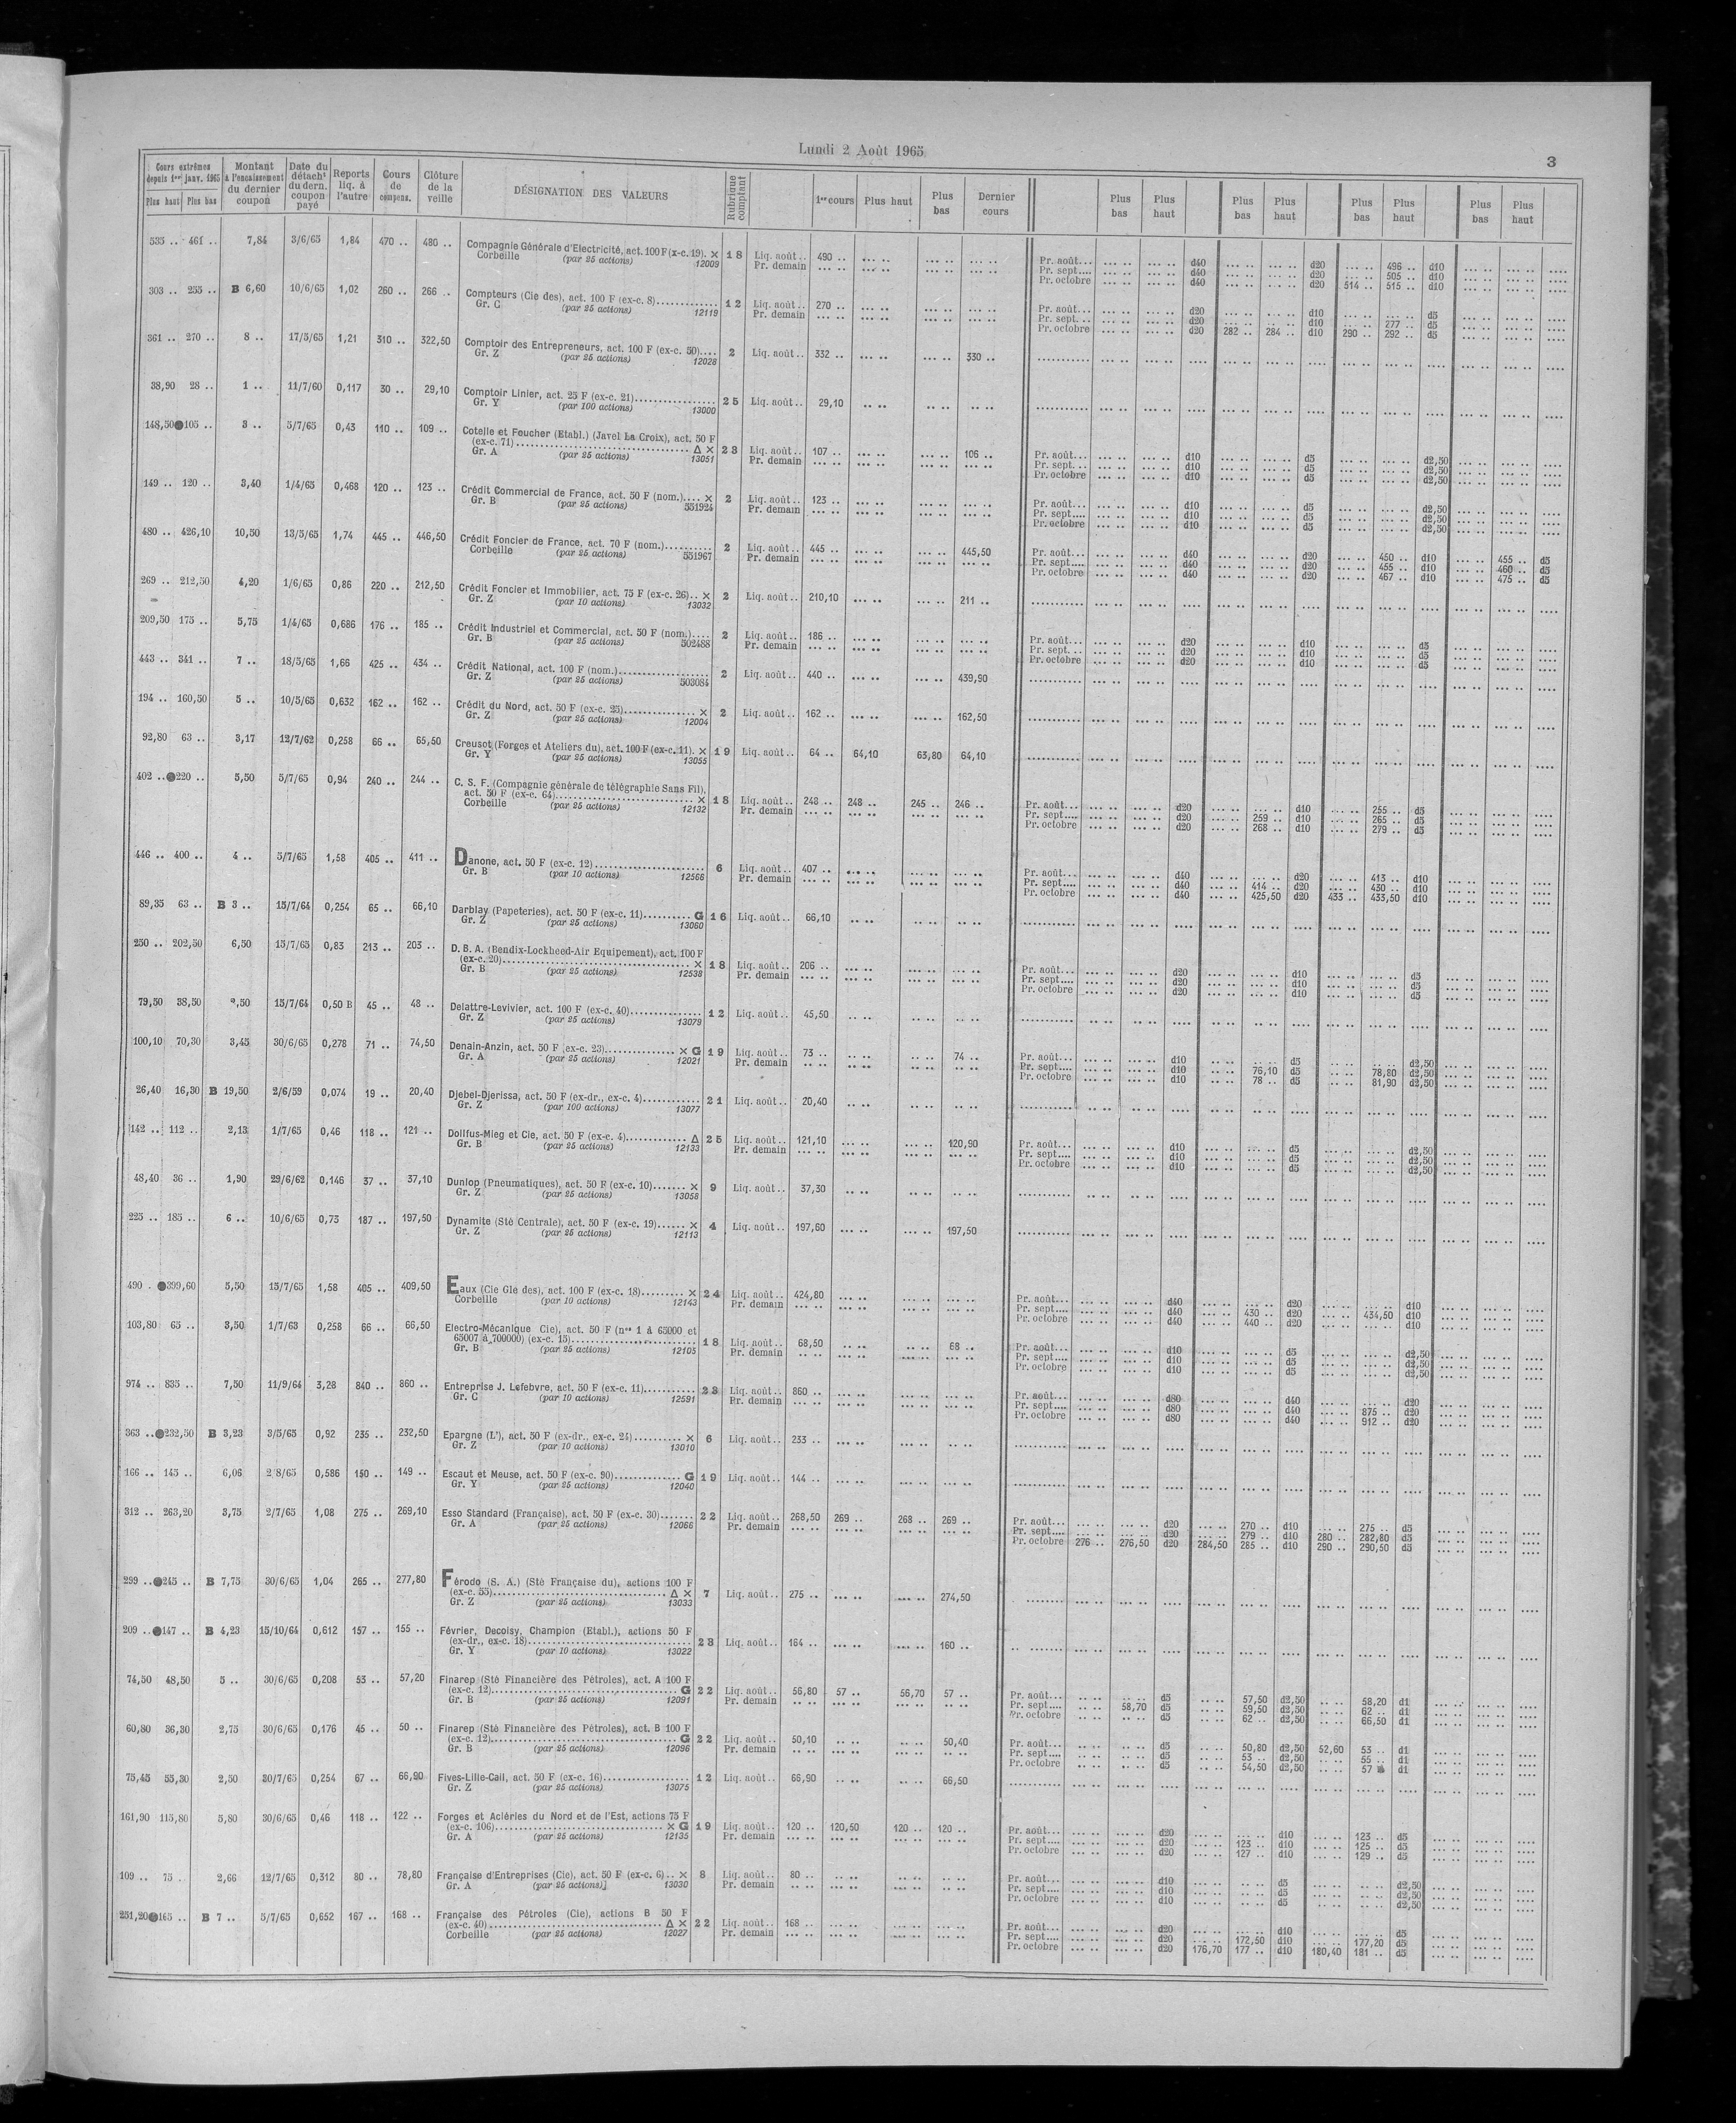 Lundi 2 Août 1965
3
Cours extrêmes depuis 1er janv. 1965 Plus haut Plus bas Montant à l'encaissement du dernier coupon Date du détacht du dern. coupon payé Reports liq. à l'autre Cours de compens. Clôture de la veille DÉSIGNATION DES VALEURS Rubrique comptant 1er cours Plus haut Plus bas Dernier cours Plus bas Plus haut Plus bas Plus haut Plus bas Plus haut Plus bas Plus haut
535 .. 461 .. 7,84 3/6/65 1,84 470 .. 480 .. Compagnie Générale d'Electricité, act. 100 F (x-c. 19). × 18 Liq. août.. 490 .. Pr. août... d40 d20 496 .. d10
Corbeille (par 25 actions) 12009 Pr. demain Pr. sept.... d40 d20 505 .. d10
Pr. octobre d40 d20 514 .. 515 .. d10
303 .. 255 .. B 6,60 10/6/65 1,02 260 .. 266 .. Compteurs (Cie des), act. 100 F (ex-c. 8)............. 12 Liq. août.. 270 .. Pr. août... d20 d10 d5
Gr. C (par 25 actions) 12119 Pr. demain Pr. sept. .. d20 d10 277 .. d5
Pr. octobre d20 282 .. 284 .. d10 290 .. 292 .. d5
361 .. 270 .. 8 .. 17/5/65 1,21 310 .. 322,50 Comptoir des Entrepreneurs, act. 100 F (ex-c. 50).... 2 Liq. août.. 332 .. 330 ..
Gr. Z (par 25 actions) 12028
38,90 28 .. 1 .. 11/7/60 0,117 30 .. 29,10 Comptoir Linier, act. 25 F (ex-c. 21)................. 25 Liq. août.. 29,10
Gr. Y (par 100 actions) 13000
148,50●105 .. 3 .. 5/7/65 0,43 110 .. 109 .. Cotelle et Foucher (Etabl.) (Javel La Croix), act. 50 F
(ex-c. 71).................................... Δ × 23 Liq. août.. 107 .. 106 .. Pr. août... d10 d5 d2,50
Gr. A (par 25 actions) 13051 Pr. demain Pr. sept. .. d10 d5 d2,50
Pr. octobre d10 d5 d2,50
149 .. 120 .. 3,40 1/4/65 0,468 120 .. 123 .. Crédit Commercial de France, act. 50 F (nom.).... × 2 Liq. août.. 123 .. Pr. août... d10 d5 d2,50
Gr. B (par 25 actions) 551924 Pr. demain Pr. sept.... d10 d5 d2,50
Pr. octobre d10 d5 d2,50
480 .. 426,10 10,50 13/5/65 1,74 445 .. 446,50 Crédit Foncier de France, act. 70 F (nom.).......... 2 Liq. août.. 445 .. 445,50 Pr. août... d40 d20 450 .. d10 455 .. d5
Corbeille (par 25 actions) 551967 Pr. demain Pr. sept.... d40 d20 455 .. d10 460 .. d5
Pr. octobre d40 d20 467 .. d10 475 .. d5
269 .. 212,50 4,20 1/6/65 0,86 220 .. 212,50 Crédit Foncier et Immobilier, act. 75 F (ex-c. 26).. × 2 Liq. août.. 210,10 211 ..
Gr. Z (par 10 actions) 13032
209,50 175 .. 5,75 1/4/65 0,686 176 .. 185 .. Crédit Industriel et Commercial, act. 50 F (nom.).... 2 Liq. août.. 186 .. Pr. août... d20 d10 d5
Gr. B (par 25 actions) 502488 Pr. demain Pr. sept. .. d20 d10 d5
Pr. octobre d20 d10 d5
443 .. 341 .. 7 .. 18/5/65 1,66 425 .. 434 .. Crédit National, act. 100 F (nom.)................... 2 Liq. août.. 440 .. 439,90
Gr. Z (par 25 actions) 503084
194 .. 160,50 5 .. 10/5/65 0,632 162 .. 162 .. Crédit du Nord, act. 50 F (ex-c. 25)............... × 2 Liq. août.. 162 .. 162,50
Gr. Z (par 25 actions) 12004
92,80 63 .. 3,17 12/7/62 0,258 66 .. 65,50 Creusot (Forges et Ateliers du), act. 100 F (ex-c. 11). × 19 Liq. août.. 64 .. 64,10 63,80 64,10
Gr. Y (par 25 actions) 13055
402 ..●220 .. 5,50 5/7/65 0,94 240 .. 244 .. C. S. F. (Compagnie générale de télégraphie Sans Fil),
act. 50 F (ex-c. 64)............................. × 18 Liq. août.. 248 .. 248 .. 245 .. 246 .. Pr. août... d20 d10 255 .. d5
Corbeille (par 25 actions) 12132 Pr. demain Pr. sept.... d20 259 .. d10 265 .. d5
Pr. octobre d20 268 .. d10 279 .. d5
446 .. 400 .. 4 .. 5/7/65 1,58 405 .. 411 .. Danone, act. 50 F (ex-c. 12)....................... 6 Liq. août.. 407 .. Pr. août... d40 d20 413 .. d10
Gr. B (par 10 actions) 12566 Pr. demain Pr. sept.... d40 414 .. d20 430 .. d10
Pr. octobre d40 425,50 d20 433 .. 433,50 d10
89,35 63 .. B 3 .. 15/7/64 0,254 65 .. 66,10 Darblay (Papeteries), act. 50 F (ex-c. 11).......... G 16 Liq. août.. 66,10
Gr. Z (par 25 actions) 13060
250 .. 202,50 6,50 15/7/65 0,83 213 .. 203 .. D. B. A. (Bendix-Lockheed-Air Equipement), act. 100 F
(ex-c. 20)........................................ × 18 Liq. août.. 206 .. Pr. août... d20 d10 d5
Gr. B (par 25 actions) 12538 Pr. demain Pr. sept.... d20 d10 d5
Pr. octobre d20 d10 d5
79,50 38,50 ,50 15/7/64 0,50 B 45 .. 48 .. Delattre-Levivier, act. 100 F (ex-c. 40)............... 12 Liq. août.. 45,50
Gr. Z (par 25 actions) 13079
100,10 70,30 3,45 30/6/65 0,278 71 .. 74,50 Denain-Anzin, act. 50 F (ex-c. 23)............... × G 19 Liq. août.. 73 .. 74 .. Pr. août... d10 d5 d2,50
Gr. A (par 25 actions) 12021 Pr. demain Pr. sept.... d10 76,10 d5 78,80 d2,50
Pr. octobre d10 78 .. d5 81,90 d2,50
26,40 16,30 B 19,50 2/6/59 0,074 19 .. 20,40 Djebel-Djerissa, act. 50 F (ex-dr., ex-c. 4)............ 21 Liq. août.. 20,40
Gr. Z (par 100 actions) 13077
142 .. 112 .. 2,13 1/7/65 0,46 118 .. 121 .. Dollfus-Mieg et Cie, act. 50 F (ex-c. 4)............. Δ 25 Liq. août.. 121,10 120,90 Pr. août... d10 d5 d2,50
Gr. B (par 25 actions) 12133 Pr. demain Pr. sept.... d10 d5 d2,50
Pr. octobre d10 d5 d2,50
48,40 36 .. 1,90 29/6/62 0,146 37 .. 37,10 Dunlop (Pneumatiques), act. 50 F (ex-c. 10)....... × 9 Liq. août.. 37,30
Gr. Z (par 25 actions) 13058
225 .. 185 .. 6 .. 10/6/65 0,73 187 .. 197,50 Dynamite (Sté Centrale), act. 50 F (ex-c. 19)...... × 4 Liq. août.. 197,60 197,50
Gr. Z (par 25 actions) 12113
490 . ●399,60 5,50 15/7/65 1,58 405 .. 409,50 Eaux (Cie Gle des), act. 100 F (ex-c. 18)......... × 24 Liq. août.. 424,80 Pr. août... d40 d20 d10
Corbeille (par 10 actions) 12143 Pr. demain Pr. sept.... d40 430 .. d20 434,50 d10
Pr. octobre d40 440 .. d20 d10
103,80 65 .. 3,50 1/7/63 0,258 66 .. 66,50 Electro-Mécanique Cie), act. 50 F (nos 1 à 65000 et
65007 à 700000) (ex-c. 15).......................... 18 Liq. août.. 68,50 68 .. Pr. août... d10 d5 d2,50
Gr. B (par 25 actions) 12105 Pr. demain Pr. sept.... d10 d5 d2,50
Pr. octobre d10 d5 d2,50
974 .. 835 .. 7,50 11/9/64 3,28 840 .. 860 .. Entreprise J. Lefebvre, act. 50 F (ex-c. 11).......... 23 Liq. août.. 860 .. Pr. août... d80 d40 d20
Gr. C (par 10 actions) 12591 Pr. demain Pr. sept.... d80 d40 875 .. d20
Pr. octobre d80 d40 912 .. d20
363 ..●232,50 B 3,23 3/5/65 0,92 235 .. 232,50 Epargne (L'), act. 50 F (ex-dr., ex-c. 24).......... × 6 Liq. août.. 233 ..
Gr. Z (par 10 actions) 13010
166 .. 145 .. 6,06 2 8/65 0,586 150 .. 149 .. Escaut et Meuse, act. 50 F (ex-c. 90).............. G 19 Liq. août.. 144 ..
Gr. Y (par 25 actions) 12040
312 .. 263,20 3,75 2/7/65 1,08 275 .. 269,10 Esso Standard (Française), act. 50 F (ex-c. 30)....... 22 Liq. août.. 268,50 269 .. 268 .. 269 .. Pr. août... d20 270 .. d10 275 .. d5
Gr. A (par 25 actions) 12066 Pr. demain Pr. sept.... d20 279 .. d10 280 .. 282,80 d5
Pr. octobre 276 .. 276,50 d20 284,50 285 .. d10 290 .. 290,50 d5
299 ..●245 .. B 7,75 30/6/65 1,04 265 .. 277,80 Férodo (S. A.) (Sté Française du), actions 100 F
(ex-c. 55).................................... Δ × 7 Liq. août.. 275 .. 274,50
Gr. Z (par 25 actions) 13033
209 ..●147 .. B 4,23 15/10/64 0,612 157 .. 155 .. Février, Decoisy, Champion (Etabl.), actions 50 F
(ex-dr., ex-c. 18).................................. 23 Liq. août.. 164 .. 160 ..
Gr. Y (par 10 actions) 13022
74,50 48,50 5 .. 30/6/65 0,208 53 .. 57,20 Finarep (Sté Financière des Pétroles), act. A 100 F
(ex-c. 12)....................................... G 22 Liq. août.. 56,80 57 .. 56,70 57 .. Pr. août... d5 57,50 d2,50 58,20 d1
Gr. B (par 25 actions) 12091 Pr. demain Pr. sept.... 58,70 d5 59,50 d2,50 62 .. d1
Pr. octobre d5 62 .. d2,50 66,50 d1
60,80 36,30 2,75 30/6/65 0,176 45 .. 50 .. Finarep (Sté Financière des Pétroles), act. B 100 F
(ex-c. 12)....................................... G 22 Liq. août.. 50,10 50,40 Pr. août... d5 50,80 d2,50 52,60 53 .. d1
Gr. B (par 25 actions) 12096 Pr. demain Pr. sept.... d5 53 .. d2,50 55 .. d1
Pr. octobre d5 54,50 d2,50 57 d1
75,45 55,30 2,50 30/7/65 0,254 67 .. 66,90 Fives-Lille-Cail, act. 50 F (ex-c. 16).................. 12 Liq. août.. 66,90 66,50
Gr. Z (par 25 actions) 13075
161,90 115,80 5,80 30/6/65 0,46 118 .. 122 .. Forges et Aciéries du Nord et de l'Est, actions 75 F
(ex-c. 106)................................... × G 19 Liq. août.. 120 .. 120,50 120 .. 120 .. Pr. août... d20 d10 123 .. d5
Gr. A (par 25 actions) 12135 Pr. demain Pr. sept.... d20 123 .. d10 125 .. d5
Pr. octobre d20 127 .. d10 129 .. d5
109 .. 75 . 2,66 12/7/65 0,312 80 .. 78,80 Française d'Entreprises (Cie), act. 50 F (ex-c. 6).. × 8 Liq. août.. 80 .. Pr. août... d10 d5 d2,50
Gr. A (par 25 actions)] 13030 Pr. demain Pr. sept.... d10 d5 d2,50
Pr. octobre d10 d5 d2,50
251,20●165 .. B 7 .. 5/7/65 0,652 167 .. 168 .. Française des Pétroles (Cie), actions B 50 F
(ex-c. 40).................................... Δ × 22 Liq. août.. 168 .. Pr. août... d20 d10 d5
Corbeille (par 25 actions) 12027 Pr. demain Pr. sept.... d20 172,50 d10 177,20 d5
Pr. octobre d20 176,70 177 .. d10 180,40 181 .. d5